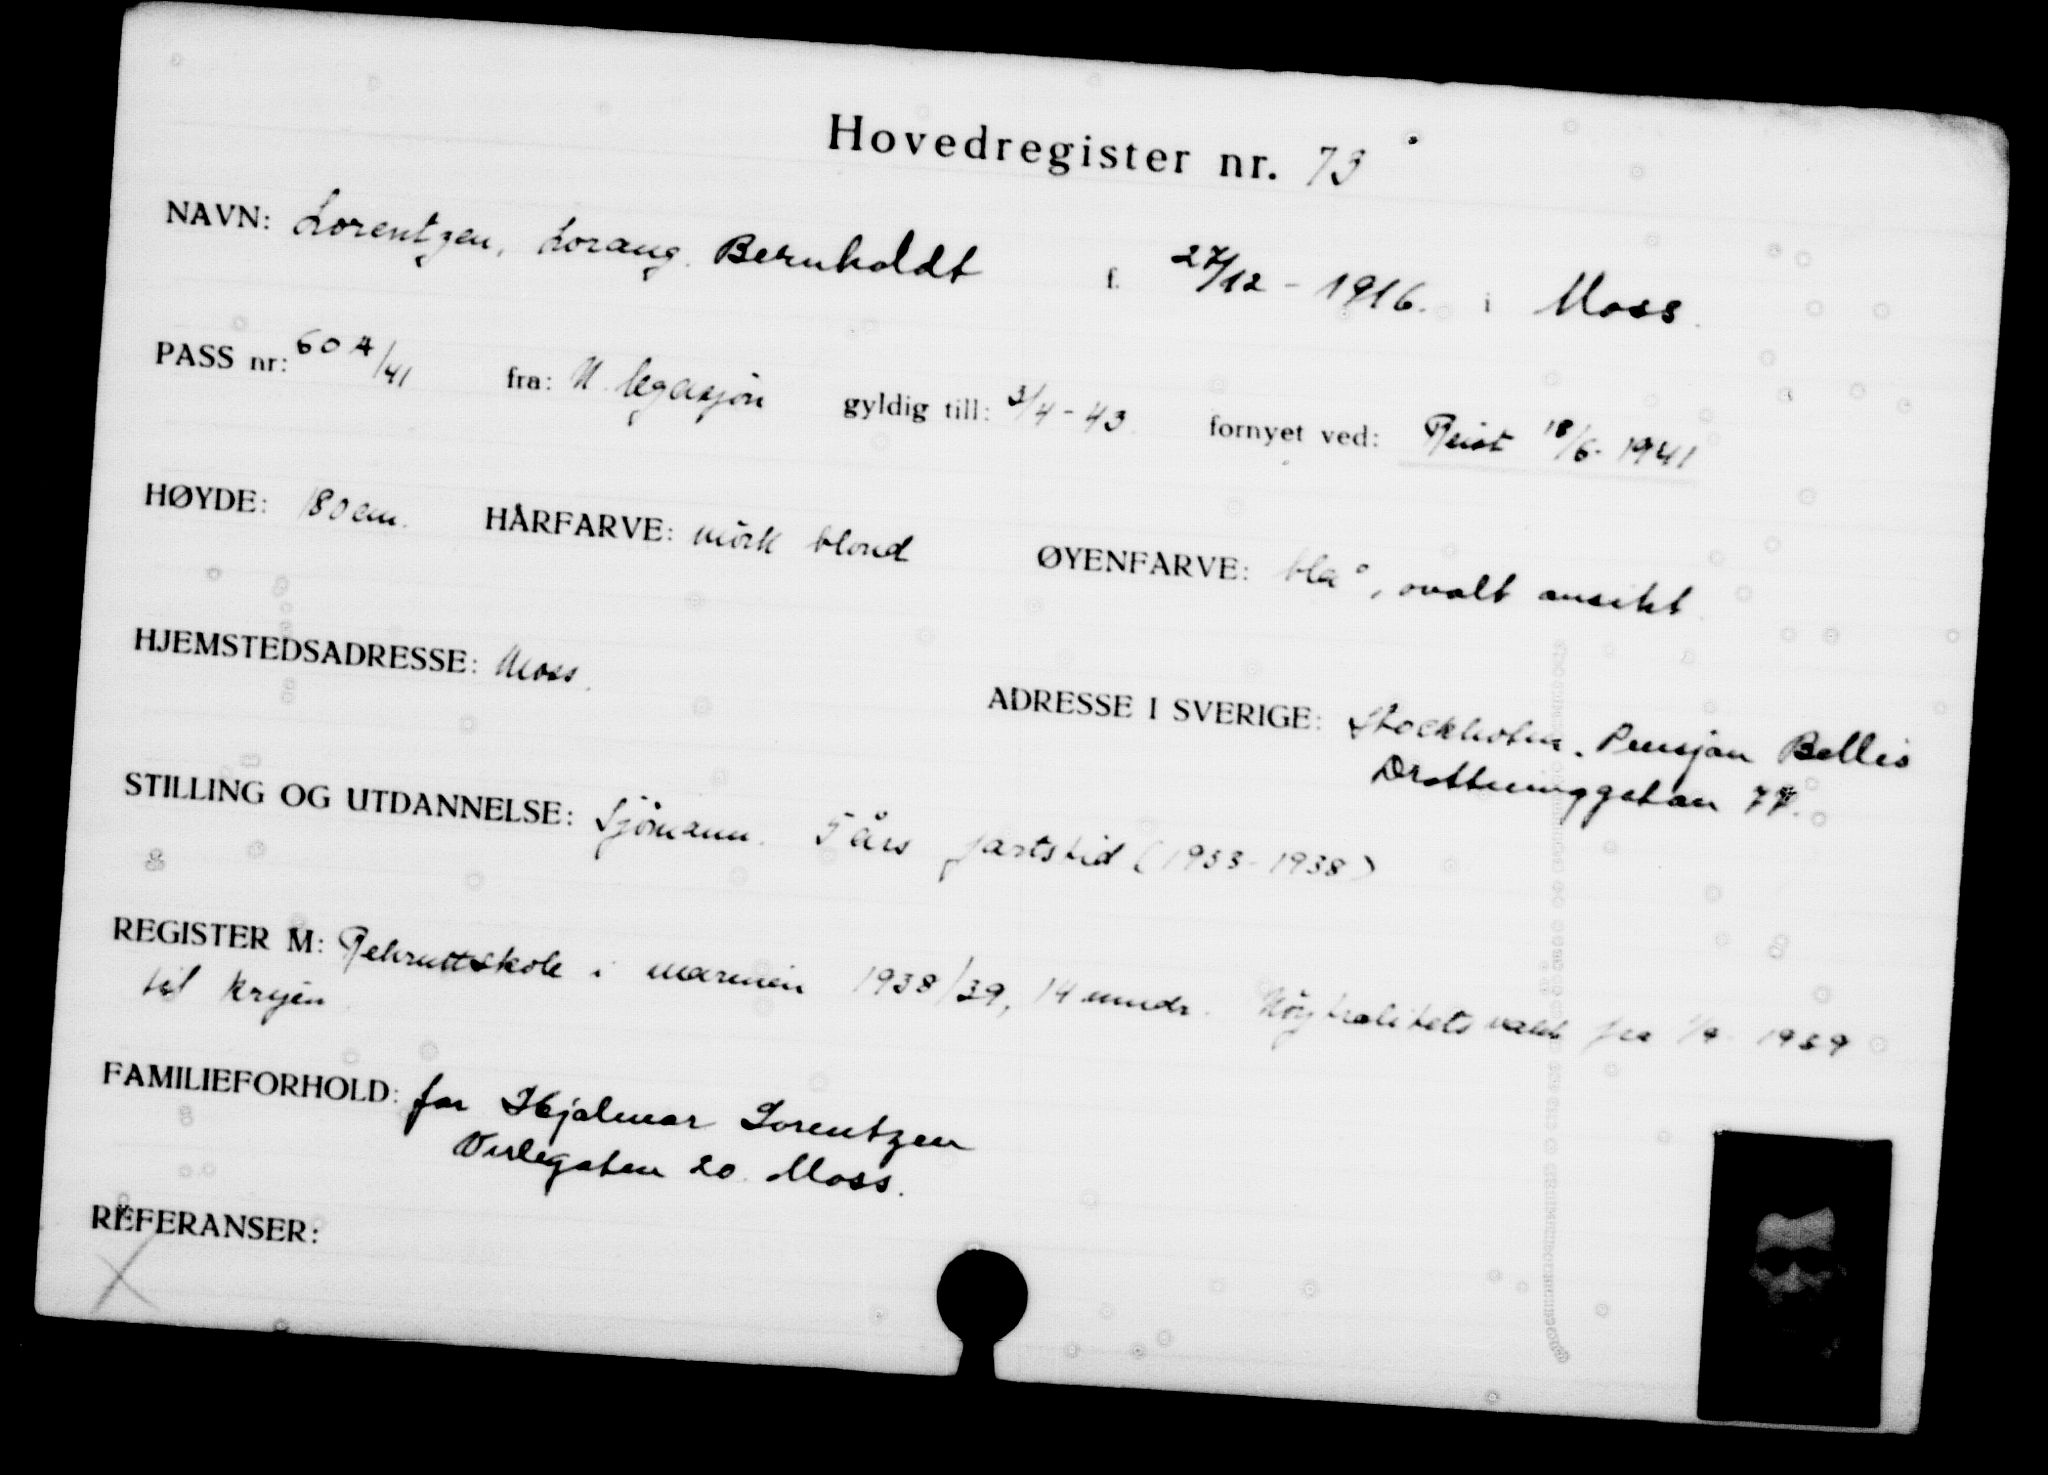 Hovedregister nr. 73
NAVN: Lorentzen, Lorang Bernholdt f. 27/12 - 1916. i Moss.
PASS nr: 604/41 fra: N. legasjon gyldig till: 3/4 - 43. fornyet ved: Reist 18/6 - 1941
HØYDE: 180 cm. HÅRFARVE: mörk blond ØYENFARVE: blå, ovalt ansikt.
HJEMSTEDSADRESSE: Moss.
ADRESSE I SVERIGE: Stockholm. Pensjon Bellis
Drottninggatan
STILLING OG UTDANNELSE: Sjömann. 5 års fartstid (1933 - 1938)
REGISTER M: Rekruttskole i marinen 1938/39, 14 mndr. Nöytralitetsvakt fra 1/9 - 1939
til krigen.
FAMILIEFORHOLD: far Hjalmar Lorentzen
20. Moss.
REFERANSER: